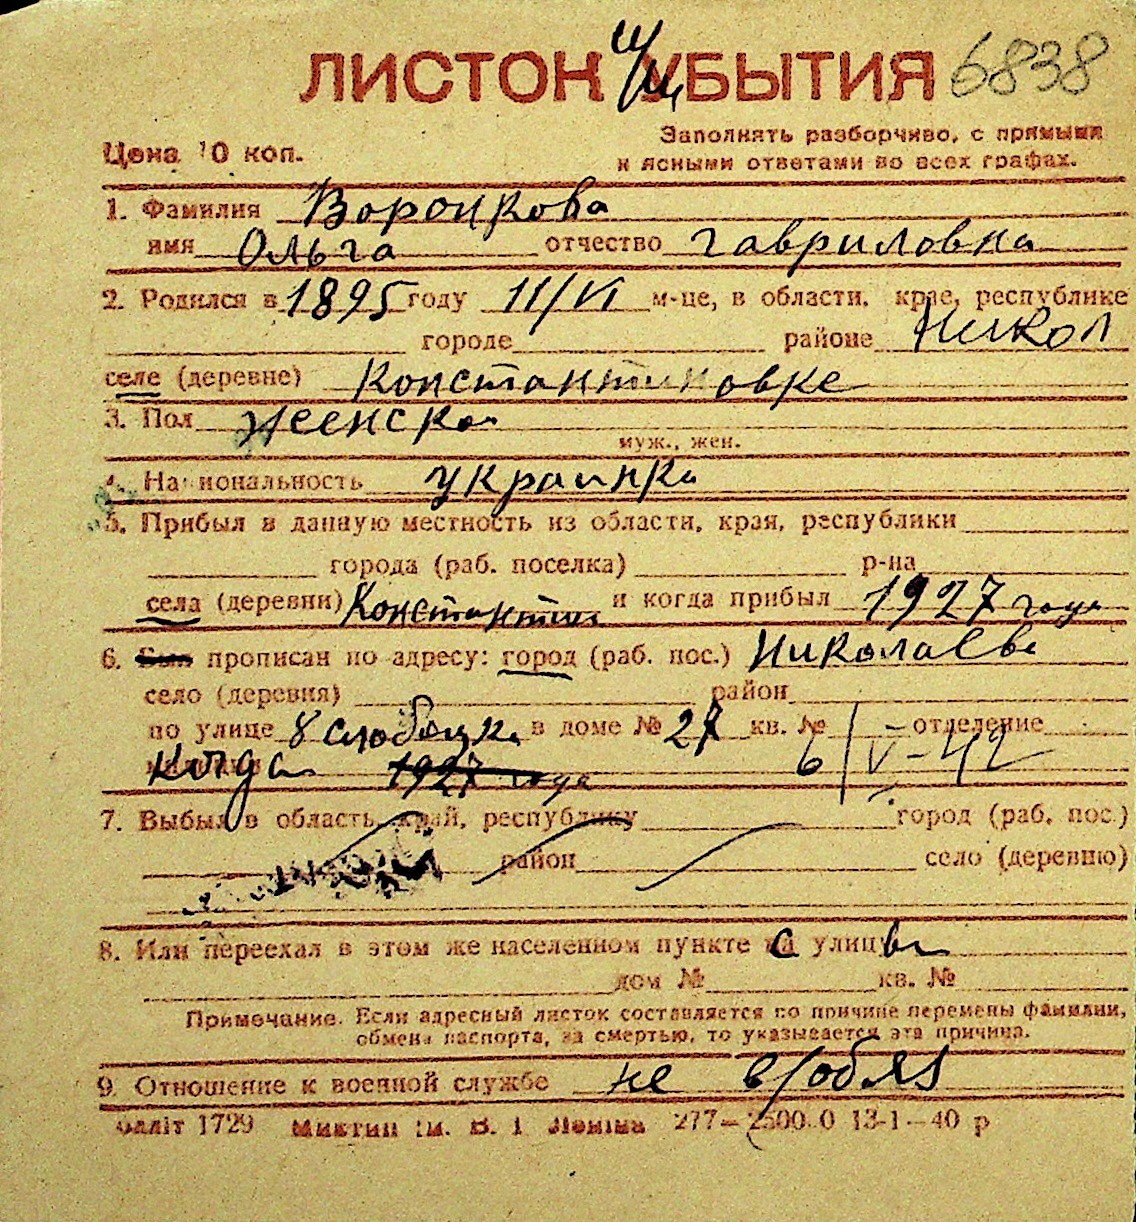 ЛИСТОК УБЫТИЯ 6838
Цена 10 коп.
Заполнять разборчиво, с прямыми
и ясными ответами во всех графах.
1. Фамилия Воронкова
имя Ольга отчество Гавриловна
2. Родился в 1895 году 11/VI м-це, в области, крае, республике
городе районе Никол
селе (деревне) Константиновке
3. Пол женская
муж., жен.
4. Национальность украинка
5. Прибыл в данную местность из области, края, республики
города (раб. поселка) р-на
села (деревни) Константин и когда прибыл 1927 года
6. Был прописан по адресу: город (раб. пос.) Николаеве
село (деревня) район
по улице 8 слободск. в доме № 27 кв. № отделение
когда 1927 года 6/V-42
7. Выбыл в область, край, республику город (раб. пос.)
район село (деревню)
8. Или переехал в этом же населенном пункте на улицу
дом № кв. №
Примечание. Если адресный листок составляется по причине перемены фамилии,
обмена паспорта, за смертью, то указывается эта причина.
9. Отношение к военной службе не в/обяз
1729 277—2500.0 13-1—40 р